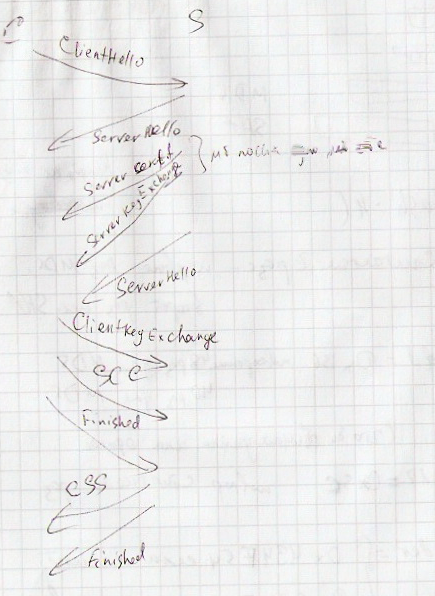 C S
ClientHello
ServerHello
Server certif
ServerKeyExchange
ServerHello
ClientKeyExchange
SCC
Finished
CSS
Finished